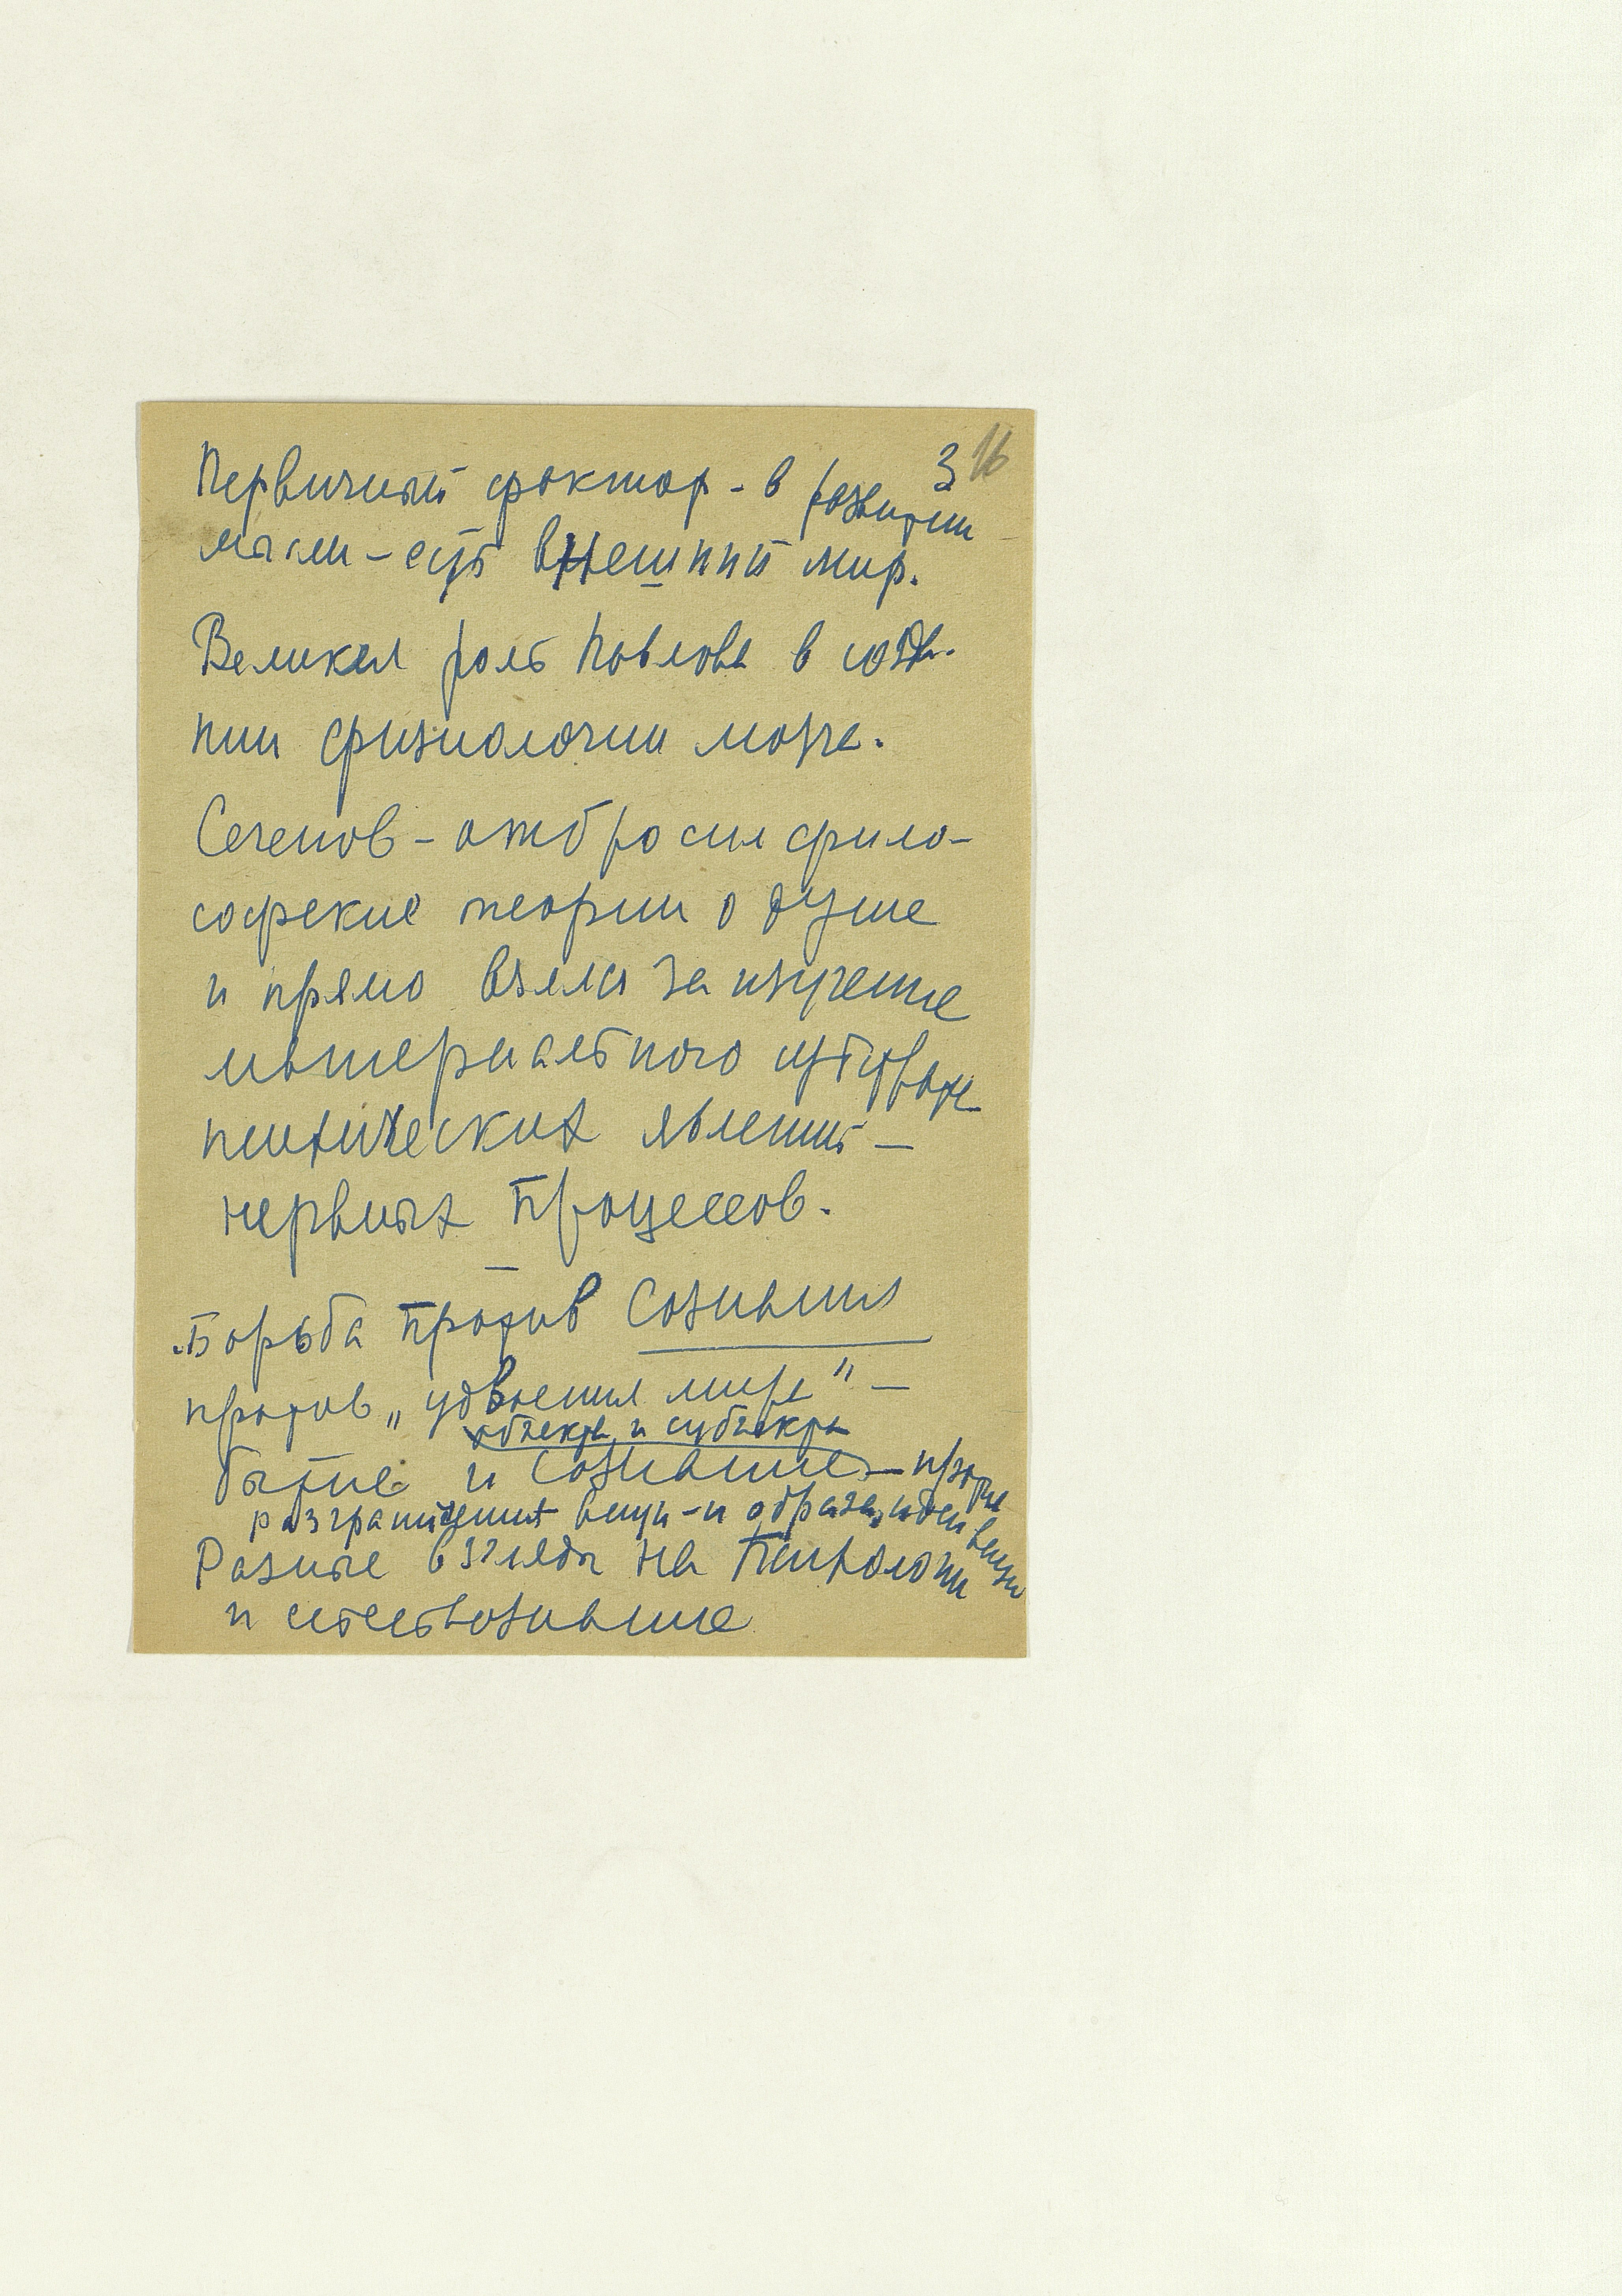 3 16
Первичный фактор - в развитии
мысли - суть внешний мир.
Великая роль Павлова в созда-
нии физиологии мозга.
Сеченов - отбросил фило-
софские теории о душе
и прямо взялся за изучение
материального субстрата
психических явлений —
нервных процессов.
Борьба против Сознания
против „удвоения мира" —
объекта и субъекта
бытие и сознание — против
разграничения вещи - и образа, идеи вещи
Разные взгляды на Психологии
и естествознание